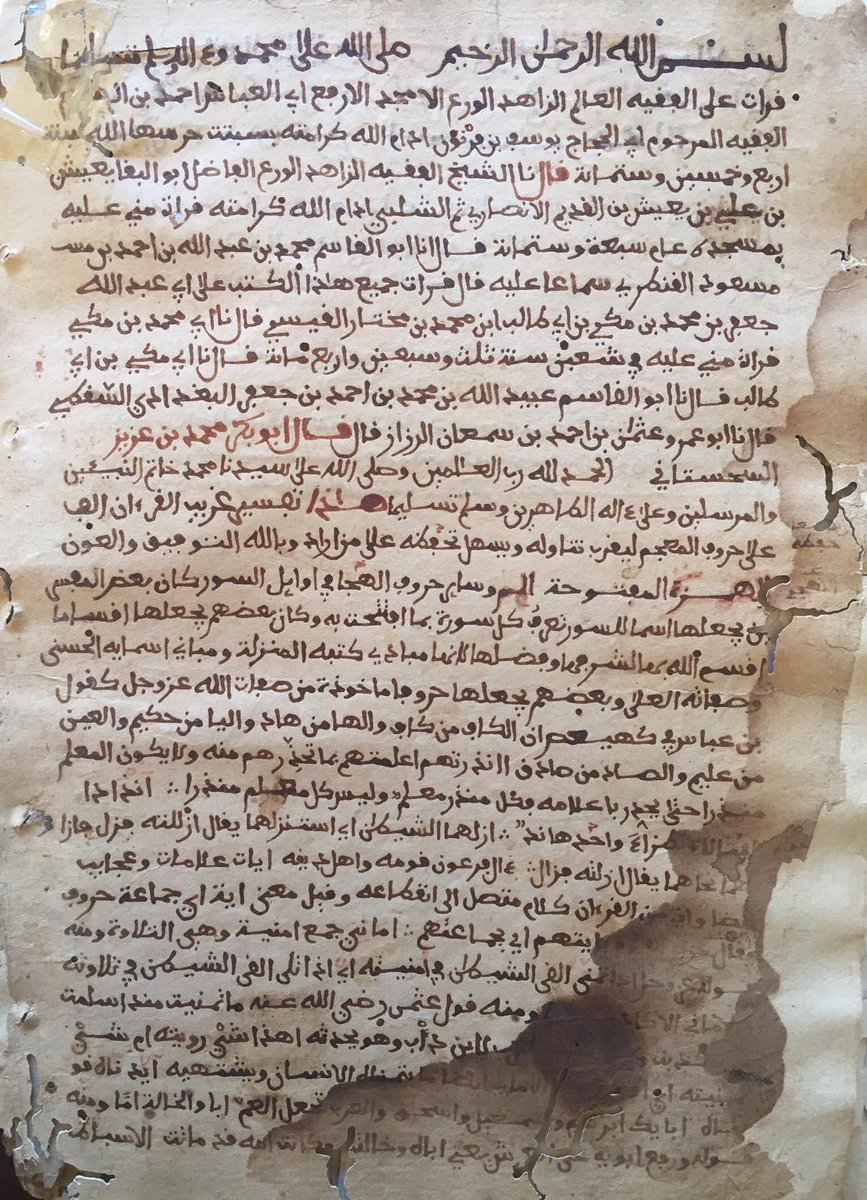 بسم الله الرحمن الرحيم صلى الله على محمد وءاله وسلم تسليما
قرات على الفقيه العالم الزاهد الورع الامجد الارفع ابي العباس احمد بن
الفقيه المرحوم ابي الحجاج يوسف بن فرتون ادام الله كرامته بسبتت حرسها الله سنة
اربع وخمسين وستمائة قال نا الشيخ الفقيه الزاهد الورع الفاضل ابو البقا يعيش
بن علي بن يعيش بن القديم الانصاري ثم الشلبي ادام الله كرامته قراة مني عليه
بمسجده عام سبعة وستمائة قال انا ابو القاسم محمد بن عبد الله بن احمد بن مسـ
مسعود القنطري سماعا عليه قال قرات جميع هاذا الكتب على ابي عبد الله
جعفر بن محمد بن مكي بن ابي طالب ابن محمد بن مختار القيسي قال نا ابي محمد بن مكي
قراة مني عليه في شعبن سنة ثلث وسبعين واربع مائة قال نا ابي مكي بن ابي
طالب قال نا ابو القاسم عبيد الله بن محمد بن احمد بن جعفر البغدادي السقطي
قال نا ابو عمرو عثمان بن احمد بن سمعان الرزاز قال قال ابو بكر محمد بن عزيز
السجستاني الحمد لله رب العالمين وصلى الله على سيدنا محمد خاتم النبيئين
والمرسلين وعلى ءاله الطاهرين وسلم تسليما هاذا تفسير غريب القرءان الف
على حروف المعجم ليقرب تناوله ويسهل تحفظه على من اراده وبالله التوفيق والعون
الهمزة المفتوحة الم وساير حروف الهجا في اوايل السور كان بعض المفسر
ين يجعلها اسما للسور تعرف كل سورة بما افتتحت به وكان بعضهم يجعلها اقساما
اقسم الله بها لشرفها وفضلها لانها مبادي كتبه المنزلة ومباني اسمايه الحسنى
وصفاته العلى وبعضهم يجعلها حروفا ماخوذة من صفات الله عز وجل كقول
بن عباس في كهيعص ان الكاف من كاف والها من هاد واليا من حكيم والعين
من عليم والصاد من صادق اانذرتهم اعلمتهم بما تحذرهم منه ولا يكون المعلم
منذرا حتى يحذر باعلامه فكل منذر معلم وليس كل معلم منذرا اندادا
امثالا ونظراء واحدها ند ازلهما الشيطان اي استزلهما يقال ازللته فزل فازا
نحاهما يقال ازلته فزال ءال فرعون قومه واهل دينه ايات علامات وعجايب
ايضا واية من القرءان كلام متصل الى انقطاعه وقيل معنى اية اي جماعة حروف
يقال بايتهم اي بجماعتهم اماني جمع امنية وهي التلاوة ومنه
قوله عز وجل اذا تمنى القى الشيطان في امنيته اي اذا تلى القى الشيطان في تلاوته
والاماني الاكاذيب ومنه قول عثمن رضي الله عنه ما تمنيت منذ اسلمت
لابن دأب وهو يحدث به اهذا شيء رويته ام شيء
تمنيته الاماني ايضا ما يتمناه الانسان ويشتهيه ايدناه قو
يناه ابايك ابرهيم واسمعيل واسحق والعرب تجعل العم ابا والخالة اما ومنه
قوله ورفع ابويه على العرش يعني اباه وخالته وكانت امه قد ماتت الاسباط